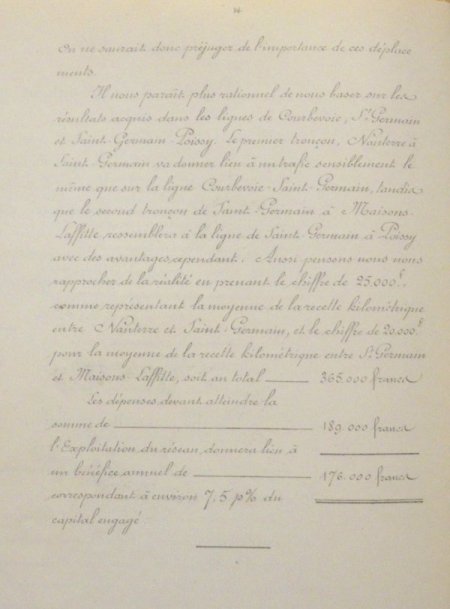 On ne saurait donc préjuger de l'importance de ces déplace
ments.
Il nous paraît plus rationnel de nous baser sur les
résultats acquis dans les lignes de Courbevoie, St Germain
et Saint-Germain Poissy. Le premier tronçon, Nanterre à
Saint-Germain va donner lieu à un trafic sensiblement le
même que sur la ligne Courbevoie-Saint-Germain, tandis
que le second tronçon de Saint-Germain à Maisons-
Laffitte, ressemblera à la ligne de Saint-Germain à Poissy
avec des avantages, cependant. Aussi pensons nous nous
rapprocher de la réalité en prenant le chiffre de 25.000f.
comme représentant la moyenne de la recette kilométrique
entre Nanterre et Saint-Germain, et le chiffre de 20.000f
pour la moyenne de la recette kilométrique entre St Germain
et Maisons-Laffitte, soit au total 365.000 francs
Les dépenses devant atteindre la
somme de 189.000 francs
l'Exploitation du réseau donnera lieu à
un bénéfice annuel de 176.000 francs
correspondant à environ 7,5 p% du
capital engagé